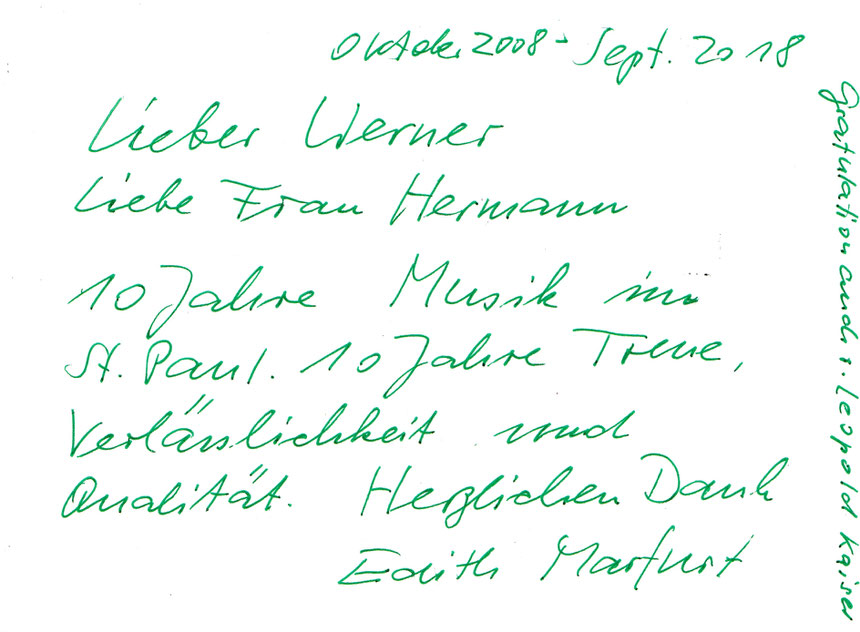 Oktober 2008 - Sept. 2018
Lieber Werner
Liebe Frau Hermann
10 Jahre Musik im
St. Paul. 10 Jahre Treue,
Verlässlichkeit und
Qualität. Herzlichen Dank
Edith Marfurt
Gratulation auch v. Leopold Kaiser